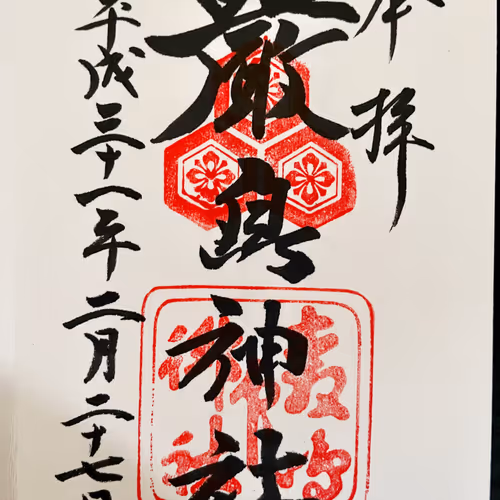 奉拝
厳島神社
平成三十一年二月二十七日